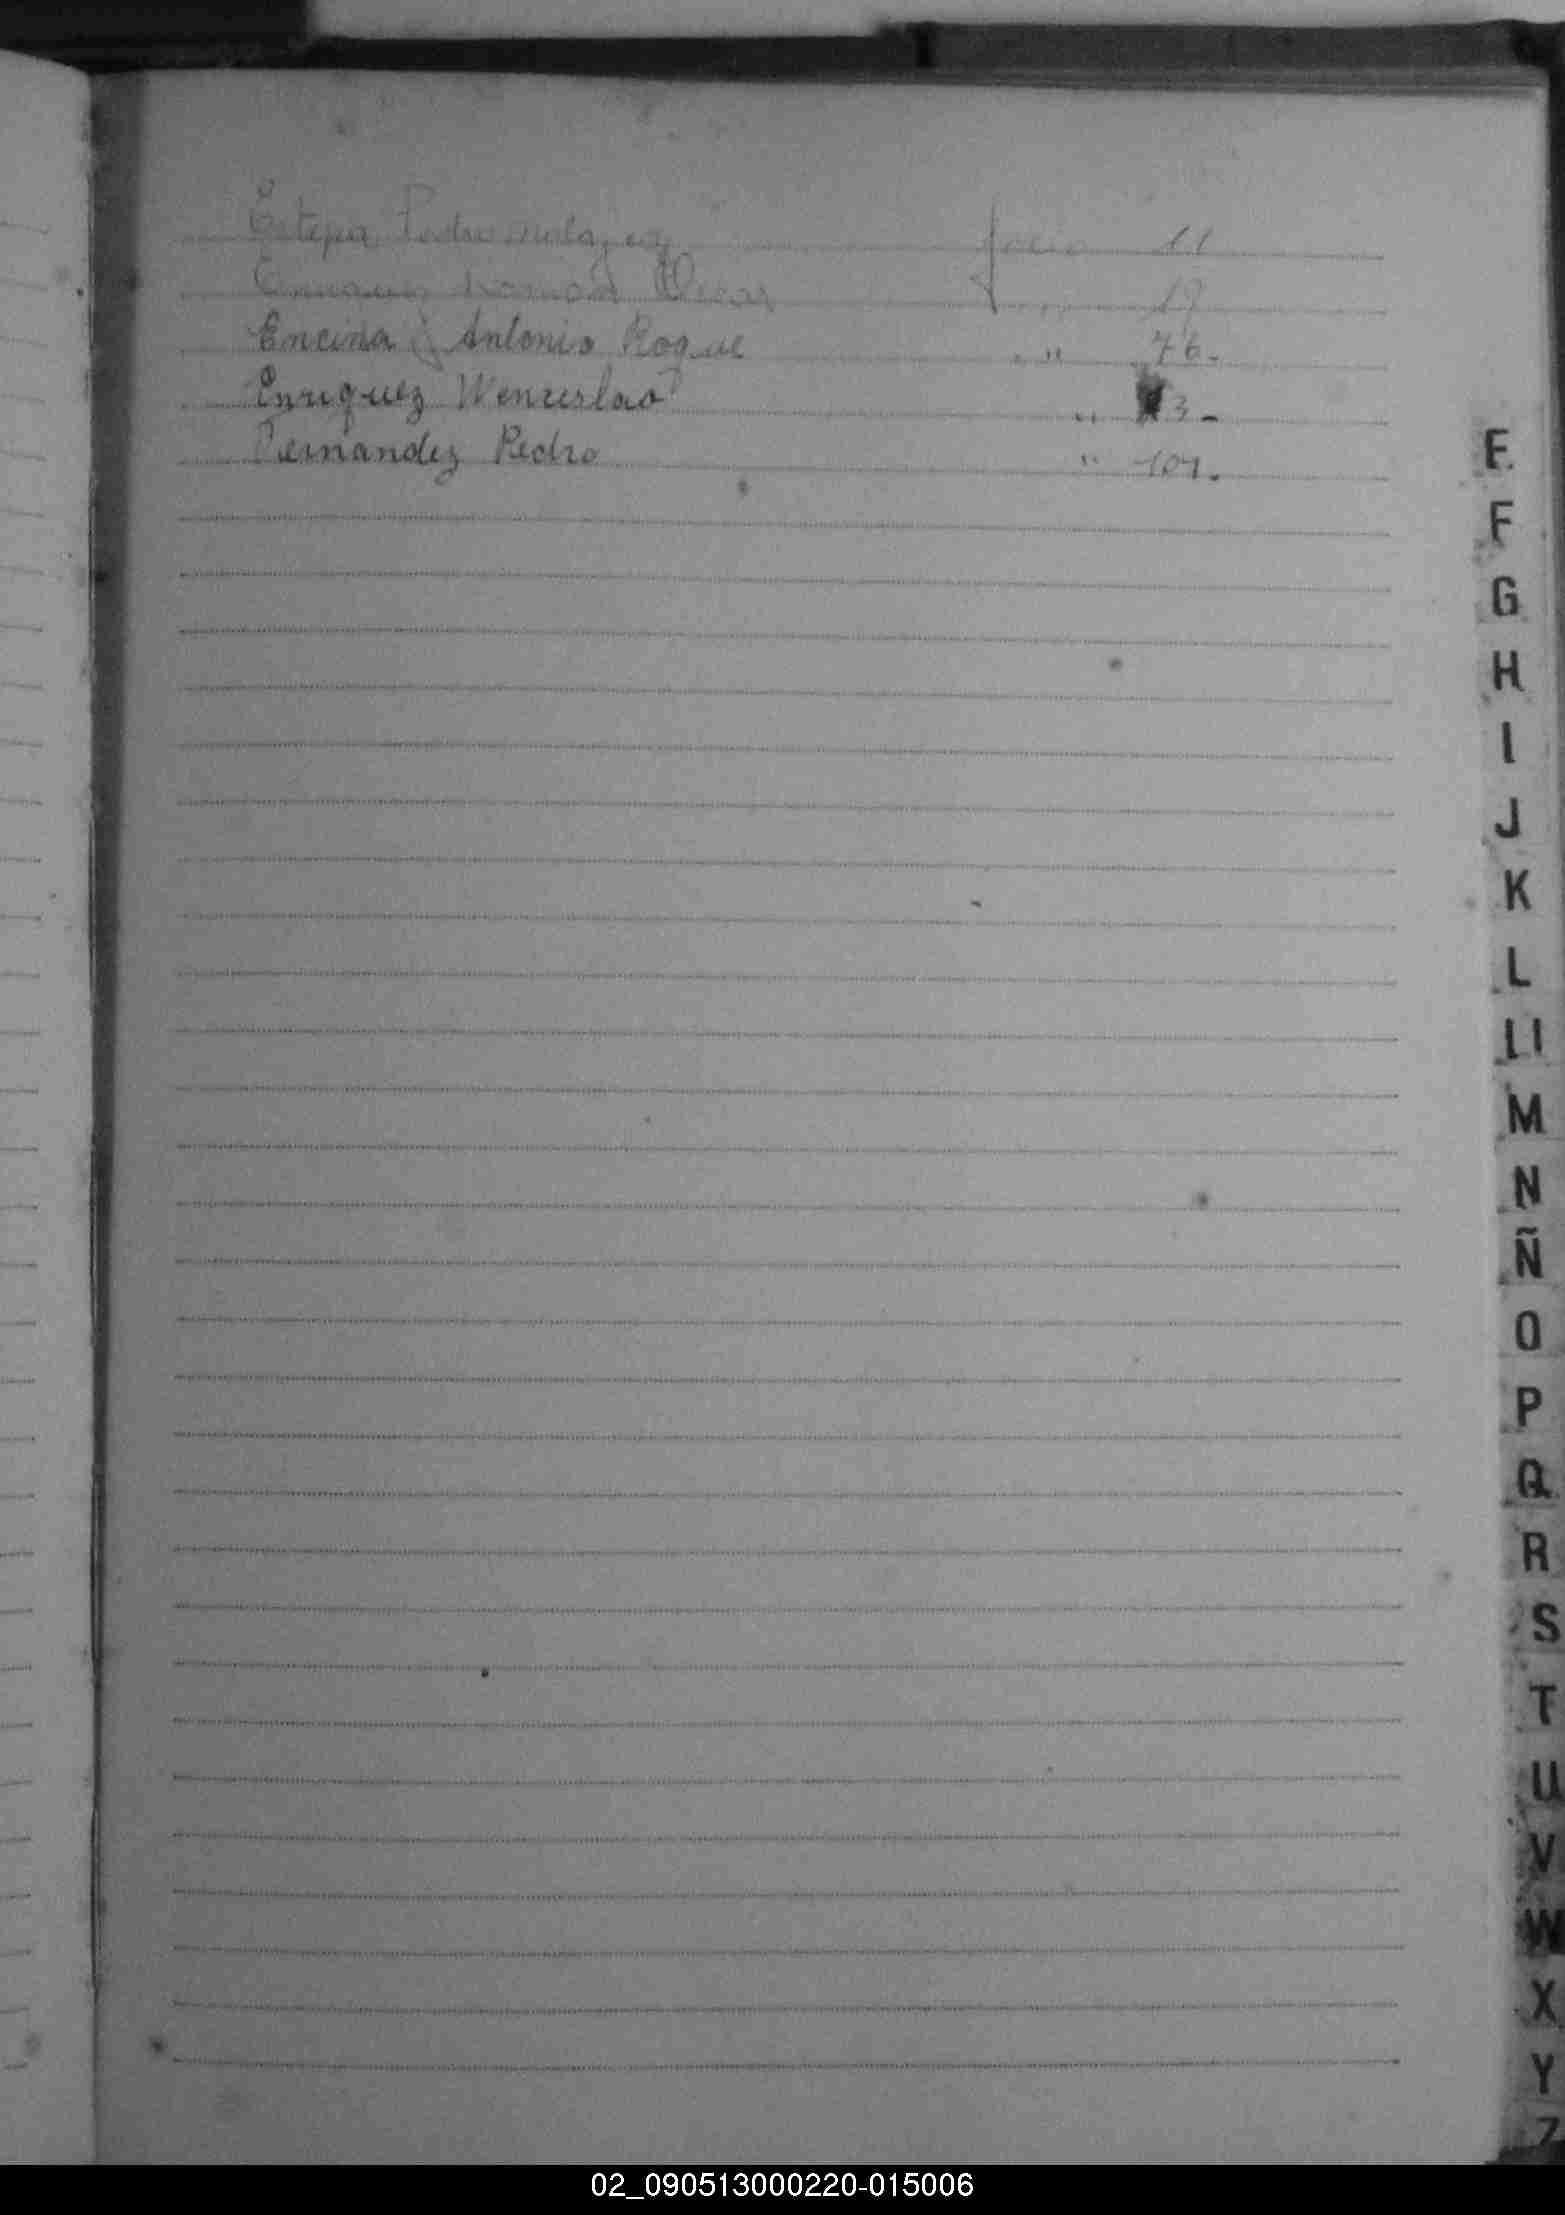 Estepa Pedro folio 11
Enriquez Ramon Oscar " 19
Encina Antonio Roque " 76.
Enriquez Wenceslao " 3-
Fernandez Pedro " 101.
E
F
G
H
I
J
K
L
Ll
M
N
Ñ
O
P
Q
R
S
T
U
V
W
X
Y
Z
02_090513000220-015006